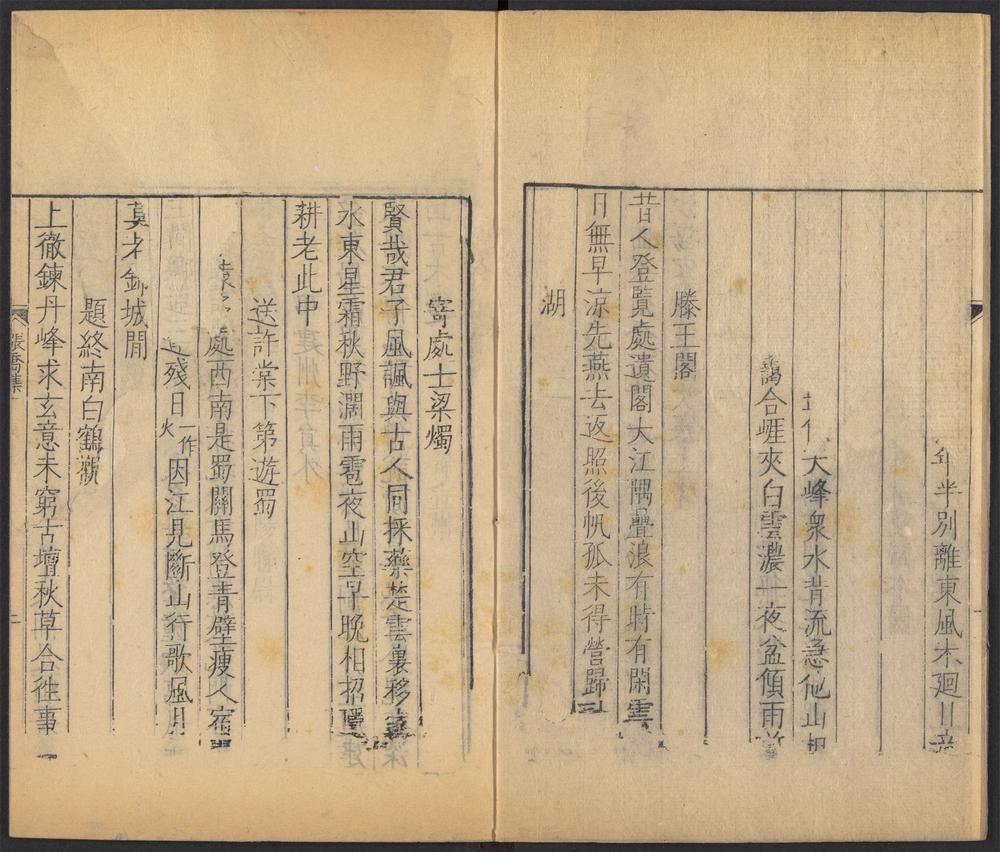 年半別離東風木廻日
大峰衆水背流急他山相
合崕夾白雲濃一夜盆傾雨
滕王閣
昔人登覽處遺閣大江隅疊浪有時有閑雲
日無早涼先燕去返照後帆孤未得營歸
湖
寄處士梁燭
賢哉君子風諷與古人同採藥楚雲裏移
水東星霜秋野濶雨雹夜山空早晚相招隱
耕老此中
送許棠下第遊蜀
處西南是蜀關馬登青壁瘦人宿
殘日一作火因江見斷山行歌風月
真才劍城閒
題終南白鶴觀
上徹鍊丹峰求玄意未窮古壇秋草合徃事
張喬集